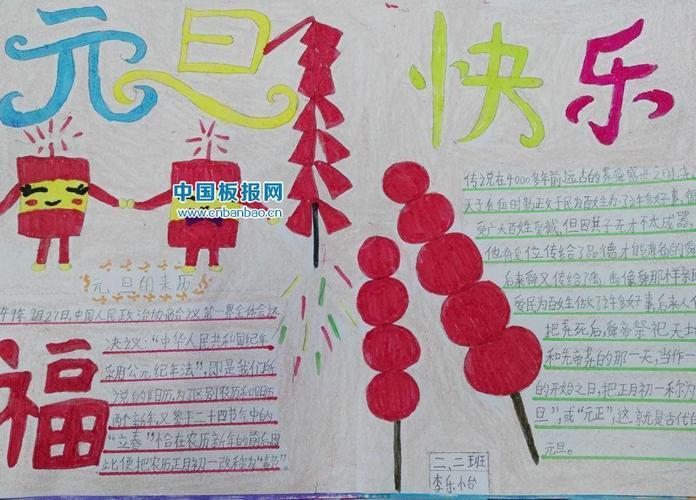 元旦快乐
中国板报网
www.cnbanbao.cn
元旦的来历
年9月27日,中国人民政治协商会议第一界全体会议
决议:"中华人民共和国纪年
采用公元纪年法",即是我们所
说的阳历,为了区别农历和阳历
两个新年,又鉴于二十四节气中的
"立春"恰在农历新年的前后因
此便把农历正月初一改称为"春节"。
福
传说在4000多年前远古的尧舜盛世之时,尧
天子在位时勤政于民为百姓办了许多好事,很
受广大百姓爱戴,但因其子无才不太成器
他
位传给了品德才能兼备的
后来舜又传给了禹,禹像舜那样
爱民为百姓做了许多好事,后来人
把尧死后,舜帝祭祀天
和先帝尧的那一天,当作
的开始之日,把正月初一称为
旦",或"元正",这就是古代的
元旦。
二、二班
李乐怡